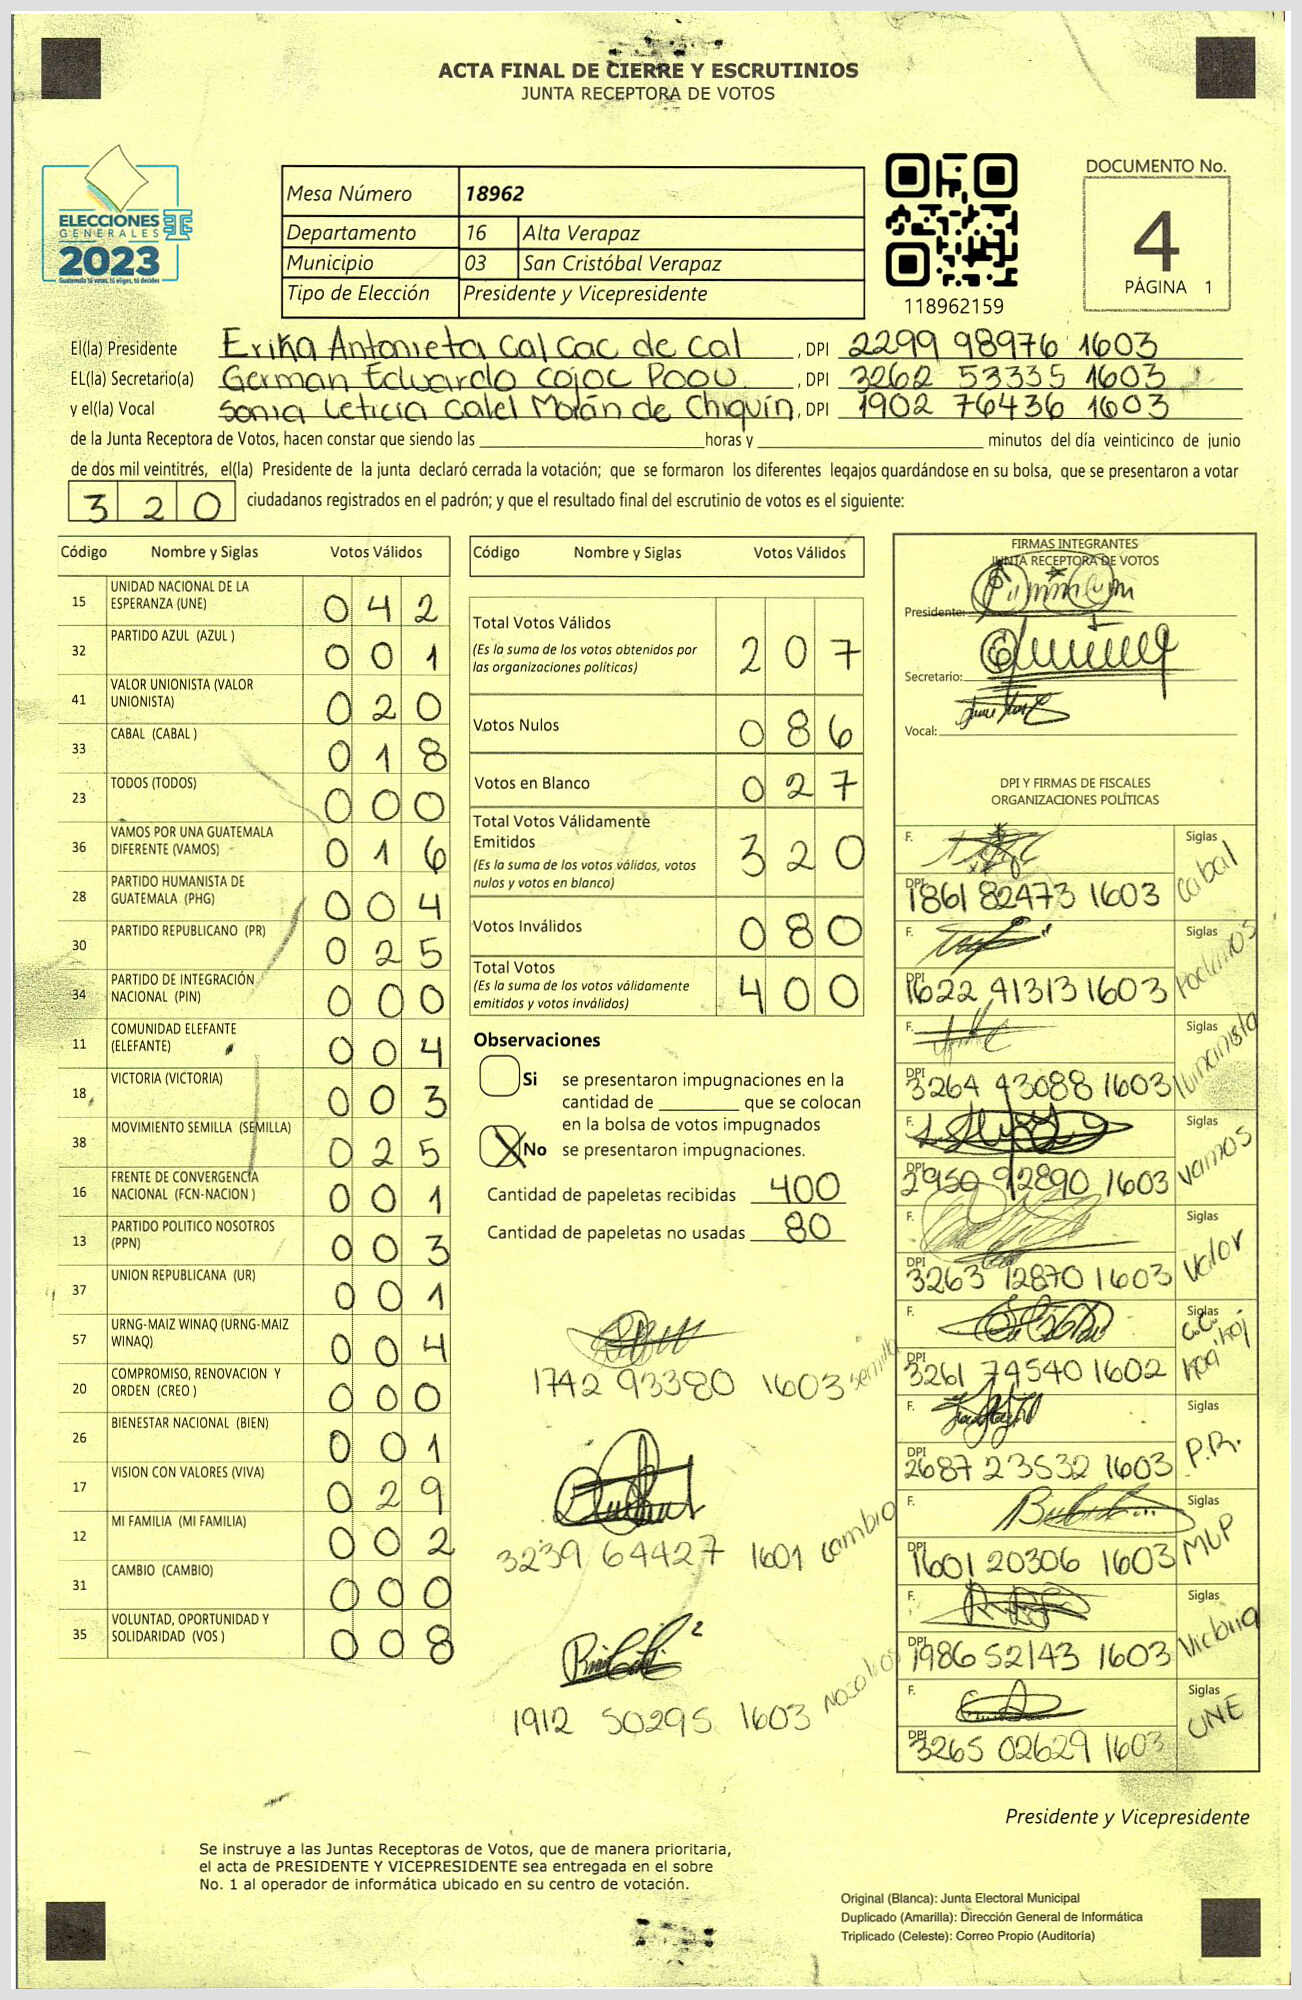 ACTA FINAL DE CIERRE Y ESCRUTINIOS
JUNTA RECEPTORA DE VOTOS
ELECCIONES
GENERALES
2023
Guatemala tú votas, tú eliges, tú decides
Mesa Número 18962
Departamento 16 Alta Verapaz
Municipio 03 San Cristóbal Verapaz
Tipo de Elección Presidente y Vicepresidente
118962159
DOCUMENTO No.
4
PÁGINA 1
El(la) Presidente Erika Antonieta Cal Cac de Cal, DPI 2299 98976 1603
EL(la) Secretario(a) German Eduardo Cojoc Poou, DPI 3262 53335 1603
y el(la) Vocal Sonia Leticia Calel Morán de Chiquín, DPI 1902 76436 1603
de la Junta Receptora de Votos, hacen constar que siendo las ____ horas y ____ minutos del día veinticinco de junio
de dos mil veintitrés, el(la) Presidente de la junta declaró cerrada la votación; que se formaron los diferentes legajos quardándose en su bolsa, que se presentaron a votar
320 ciudadanos registrados en el padrón; y que el resultado final del escrutinio de votos es el siguiente:
Código Nombre y Siglas Votos Válidos
15 UNIDAD NACIONAL DE LA ESPERANZA (UNE) 042
32 PARTIDO AZUL (AZUL ) 001
41 VALOR UNIONISTA (VALOR UNIONISTA) 020
33 CABAL (CABAL ) 018
23 TODOS (TODOS) 000
36 VAMOS POR UNA GUATEMALA DIFERENTE (VAMOS) 016
28 PARTIDO HUMANISTA DE GUATEMALA (PHG) 004
30 PARTIDO REPUBLICANO (PR) 025
34 PARTIDO DE INTEGRACIÓN NACIONAL (PIN) 000
11 COMUNIDAD ELEFANTE (ELEFANTE) 004
18 VICTORIA (VICTORIA) 003
38 MOVIMIENTO SEMILLA (SEMILLA) 025
16 FRENTE DE CONVERGENCIA NACIONAL (FCN-NACION ) 001
13 PARTIDO POLITICO NOSOTROS (PPN) 003
37 UNION REPUBLICANA (UR) 001
57 URNG-MAIZ WINAQ (URNG-MAIZ WINAQ) 004
20 COMPROMISO, RENOVACION Y ORDEN (CREO ) 000
26 BIENESTAR NACIONAL (BIEN) 001
17 VISION CON VALORES (VIVA) 029
12 MI FAMILIA (MI FAMILIA) 002
31 CAMBIO (CAMBIO) 000
35 VOLUNTAD, OPORTUNIDAD Y SOLIDARIDAD (VOS ) 008
Código Nombre y Siglas Votos Válidos
Total Votos Válidos 207
(Es la suma de los votos obtenidos por
las organizaciones políticas)
Votos Nulos 086
Votos en Blanco 027
Total Votos Válidamente
Emitidos 320
(Es la suma de los votos válidos, votos
nulos y votos en blanco)
Votos Inválidos 080
Total Votos 400
(Es la suma de los votos válidamente
emitidos y votos inválidos)
Observaciones
Si se presentaron impugnaciones en la
cantidad de ____ que se colocan
en la bolsa de votos impugnados
X No se presentaron impugnaciones.
Cantidad de papeletas recibidas 400
Cantidad de papeletas no usadas 80
1742 93380 1603 semilla
3239 64427 1601 cambio
1912 50295 1603 nosotros
FIRMAS INTEGRANTES
JUNTA RECEPTORA DE VOTOS
Presidente:
Secretario:
Vocal:
DPI Y FIRMAS DE FISCALES
ORGANIZACIONES POLÍTICAS
F. Siglas
DPI 1861 82473 1603 Cabal
F. Siglas
DPI 1622 41313 1603 Podemos
F. Siglas
DPI 3264 43088 1603 Humanista
F. Siglas
DPI 2950 92890 1603 Vamos
F. Siglas
DPI 3263 12870 1603 Valor
F. Siglas
DPI 3261 74540 1602
F. Siglas
DPI 2687 23532 1603 P.R.
F. Siglas
DPI 1601 20306 1603 MLP
F. Siglas
DPI 1986 52143 1603 Victoria
F. Siglas
DPI 3265 02629 1603 UNE
Presidente y Vicepresidente
Se instruye a las Juntas Receptoras de Votos, que de manera prioritaria,
el acta de PRESIDENTE Y VICEPRESIDENTE sea entregada en el sobre
No. 1 al operador de informática ubicado en su centro de votación.
Original (Blanca): Junta Electoral Municipal
Duplicado (Amarilla): Dirección General de Informática
Triplicado (Celeste): Correo Propio (Auditoría)